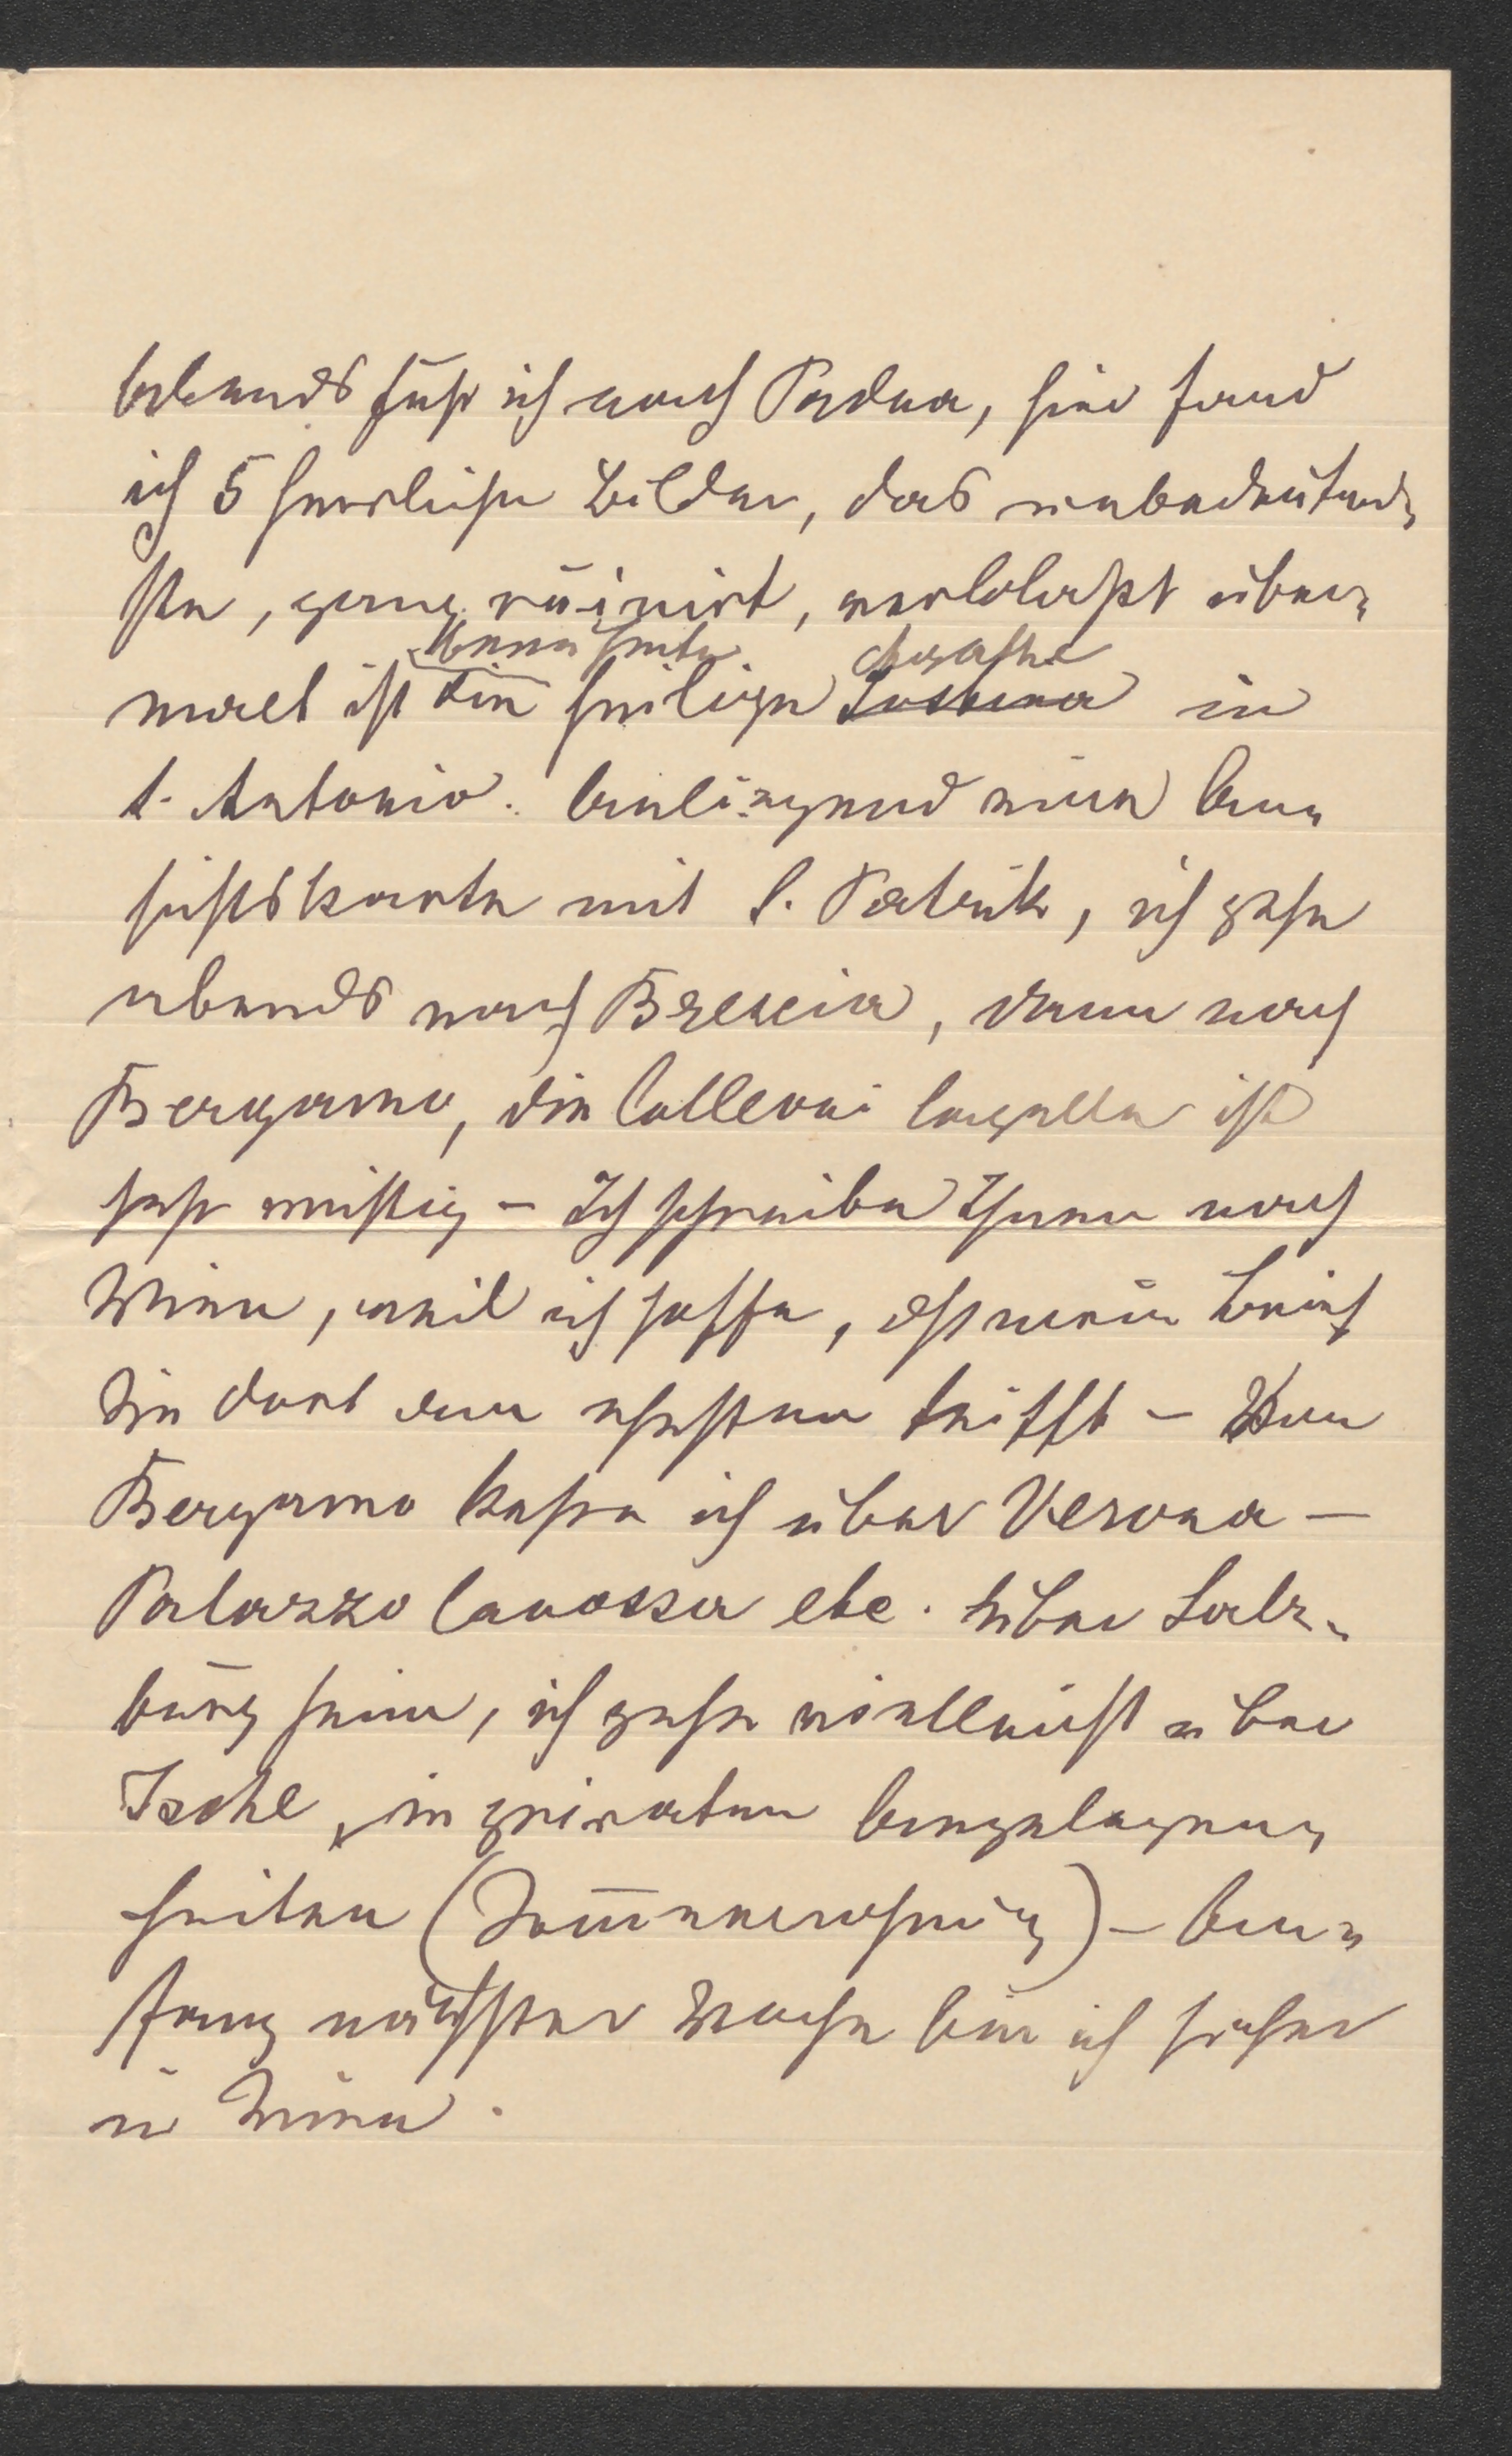 Abends fuhr ich nach Padua, hier fand
ich 5 herrliche Bilder, das unbedeutend-
ste, ganz ruinirt, verblaßt über-
malt ist die heilige Agathe in
S. Antonio. Beiliegend eine An-
sichtskarte mit S. Patrik, ich gehe
abends nach Brescia, dann nach
Bergamo, die Colleoni Capelle ist
sehr wichtig – Ich schreibe Ihnen nach
Wien, weil ich hoffe, dß mein Brief
Sie dort am ehesten trifft – Von
Bergamo kehre ich über Verona –
Palazzo Canossa etc. über Salz-
burg heim, ich gehe vielleicht über
Ischl, in privaten Angelegen-
heiten – An-
fang nächster Woche bin ich sicher
in Wien.